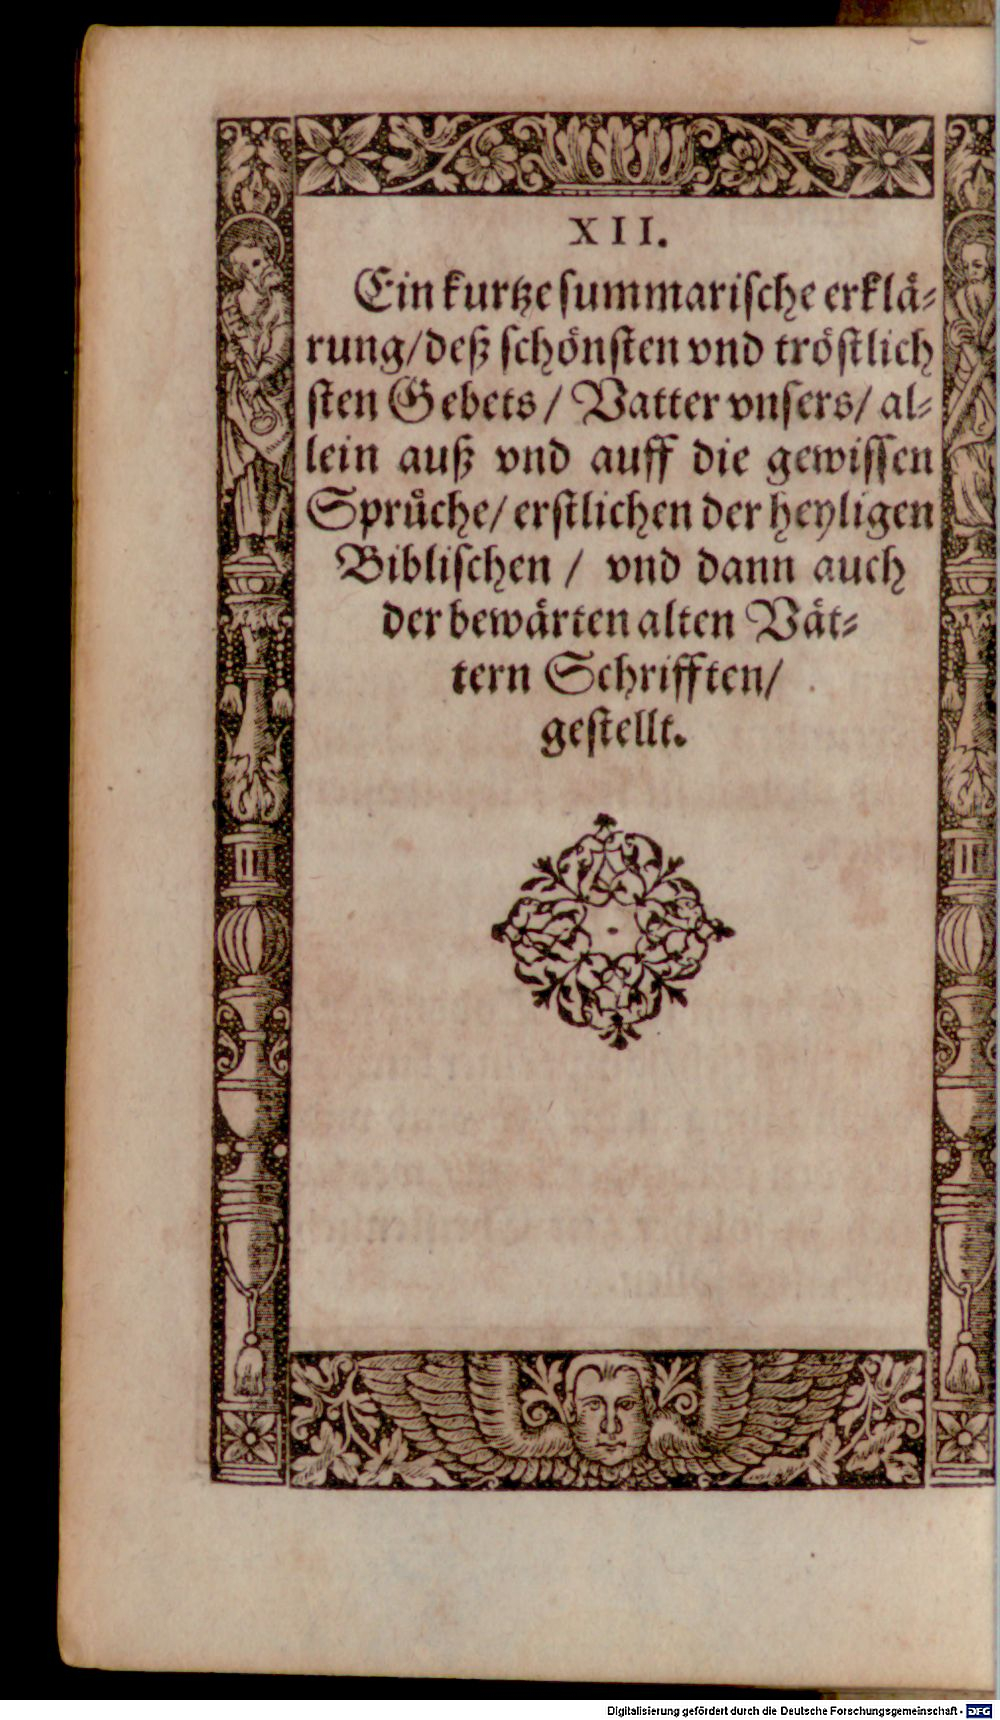 XII.
Ein kurtze summarische erklå⸗
rung/ deß schönsten vnd tröstlich
sten Gebets / Vatter vnsers/ al⸗
lein auß vnd auff die gewissen
Sprůche/ erstlichen der heyligen
Biblischen / vnd dann auch
der bewårten alten Våt⸗
tern Schrifften/
gestellt.
Digitalisierung gefördert durch die Deutsche Forschungsgemeinschaft - DFG